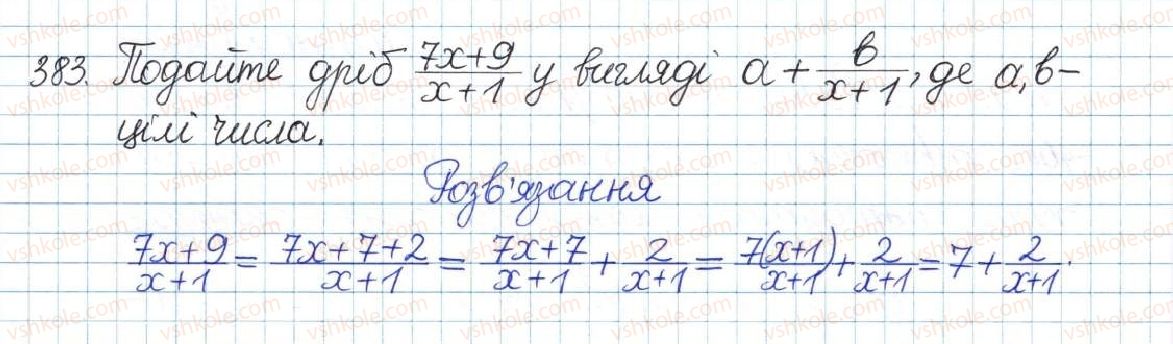 383. Подайте дріб (7x+9)/(x+1) у вигляді a + b/(x+1), де a, b –
цілі числа.
Розв'язання
(7x+9)/(x+1) = (7x+7+2)/(x+1) = (7x+7)/(x+1) + 2/(x+1) = 7(x+1)/(x+1) + 2/(x+1) = 7 + 2/(x+1).